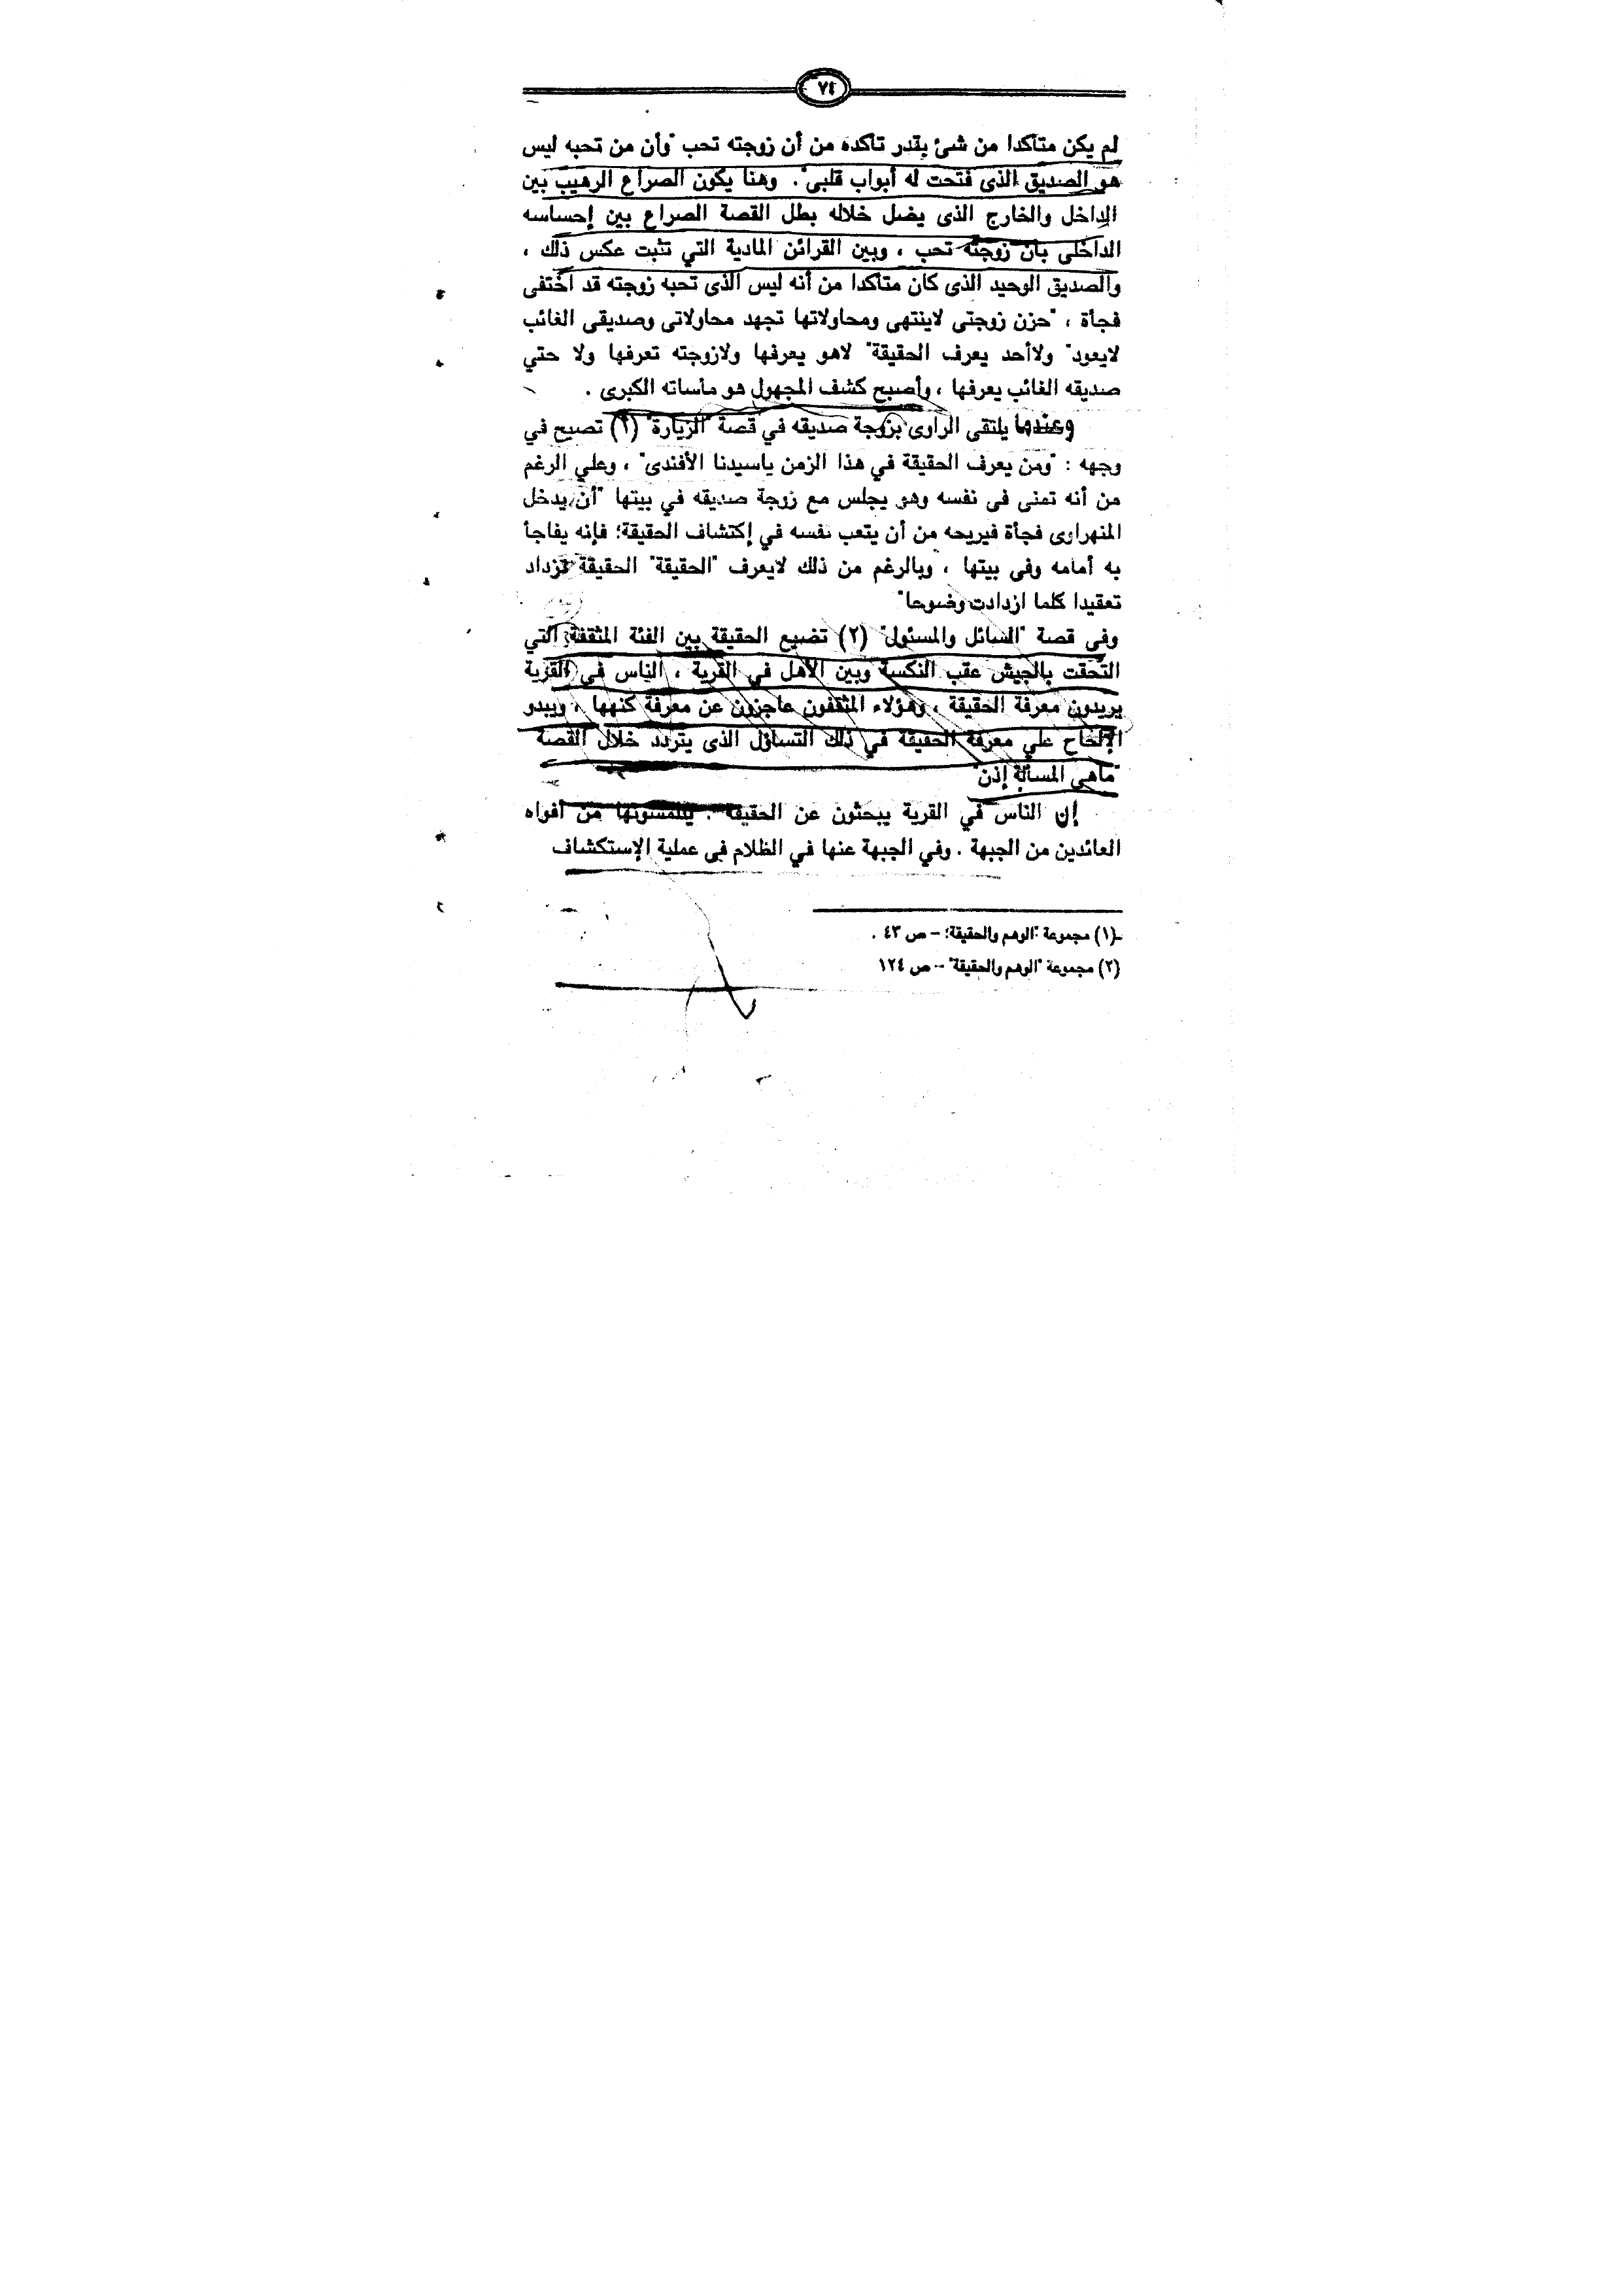 ٧٤
لم يكن متأكدا من شئ بقدر تأكده من أن زوجته تحب "وأن من تحبه ليس
هو الصديق الذى فتحت له أبواب قلبى". وهنا يكون الصراع الرهيب بين
الداخل والخارج الذى يضل خلاله بطل القصة الصراع بين إحساسه
الداخلى بأن زوجته تحب ، وبين القرائن المادية التي تثبت عكس ذلك ،
والصديق الوحيد الذى كان متأكدا من أنه ليس الذى تحبه زوجته قد اختفى
فجأة ، "حزن زوجتى لاينتهى ومحاولاتها تجهد محاولاتى وصديقى الغائب
لايعود" ولاأحد يعرف الحقيقة" لاهو يعرفها ولازوجته تعرفها ولا حتي
صديقه الغائب يعرفها ، وأصبح كشف المجهول هو مأساته الكبرى .
وعندما يلتقى الراوى بزوجة صديقه في قصة "الزيارة" (١) تصيح في
وجهه : "ومن يعرف الحقيقة في هذا الزمن ياسيدنا الأفندى" ، وعلي الرغم
من أنه تمنى فى نفسه وهو يجلس مع زوجة صديقه في بيتها "أن يدخل
المنهراوى فجأة فيريحه من أن يتعب نفسه في إكتشاف الحقيقة؛ فإنه يفاجأ
به أمامه وفى بيتها ، وبالرغم من ذلك لايعرف "الحقيقة" الحقيقة تزداد
تعقيدا كلما ازدادت وضوحا"
وفى قصة "السائل والمسئول" (٢) تضيع الحقيقة بين الفئة المثقفة التي
التحقت بالجيش عقب النكسة وبين الأهل في القرية ، الناس في القرية
يريدون معرفة الحقيقة ، وهؤلاء المثقفون عاجزون عن معرفة كنهها ، ويبدو
الإلحاح علي معرفة الحقيقة في ذلك التساؤل الذى يتردد خلال القصة
"ماهى المسألة إذن"
إن الناس في القرية يبحثون عن الحقيقة . يتلمسونها من أفواه
العائدين من الجبهة . وفي الجبهة عنها في الظلام فى عملية الإستكشاف
(١) مجموعة "الوهم والحقيقة؛ - ص ٤٣ .
(٢) مجموعة "الوهم والحقيقة" - ص ١٢٤